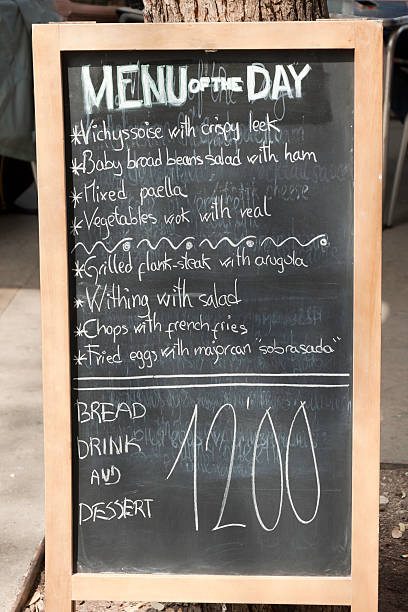 MENU OF THE DAY
*Vichyssoise with crispy leek
*Baby broad beans salad with ham
*Mixed paella
*Vegetables wok with veal
*Grilled flank-steak with arugola
*Withing with salad
*Chops with french fries
*Fried eggs with majorcan "sobrasada"
BREAD
DRINK
AND
DESSERT
12'00